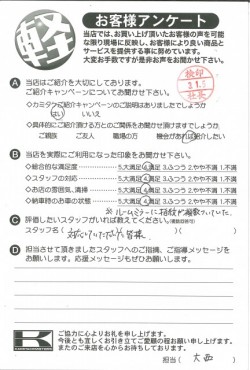 軽
お客様アンケート
当店では、お買い上げ頂いたお客様の声を可能
な限り現場に反映し、お客様により良い商品と
サービスを提供する事に努めています。
大変お手数ですが是非お声をお聞かせ下さい。
A 当店はご紹介を大切にしてあります。
ご紹介キャンペーンについてお聞かせ下さい。
◇カミタウンご紹介キャンペーンのご説明はありましたでしょうか
はい いいえ
◇具体的にご紹介頂ける方とのご関係をお聞かせ頂けますでしょうか
ご親族 ご友人 職場の方 機会があれば紹介したい
B 当店を実際にご利用になった印象をお聞かせ下さい。
◇総合的な満足度 5.大満足 4.満足 3.ふつう 2.やや不満 1.不満
◇スタッフの対応 5.大満足 4.満足 3.ふつう 2.やや不満 1.不満
◇お店の雰囲気、清掃 5.大満足 4.満足 3.ふつう 2.やや不満 1.不満
◇納車時のお車の状態 5.大満足 4.満足 3.ふつう 2.やや不満 1.不満
※ルームミラーに指紋が
C 評価したいスタッフがいれば教えてください。(複数回答可)
スタッフ名( )( )
D 担当させて頂きましたスタッフへのご指摘、ご指導メッセージを
お願いします。応援メッセージもぜひお願いします。
K
ご協力に心よりお礼を申し上げます。
今後とも宜しくお引き立てご愛顧のほどお願い申し上げます。
またのご来店を心からお待ちしております。
担当( 大西 )